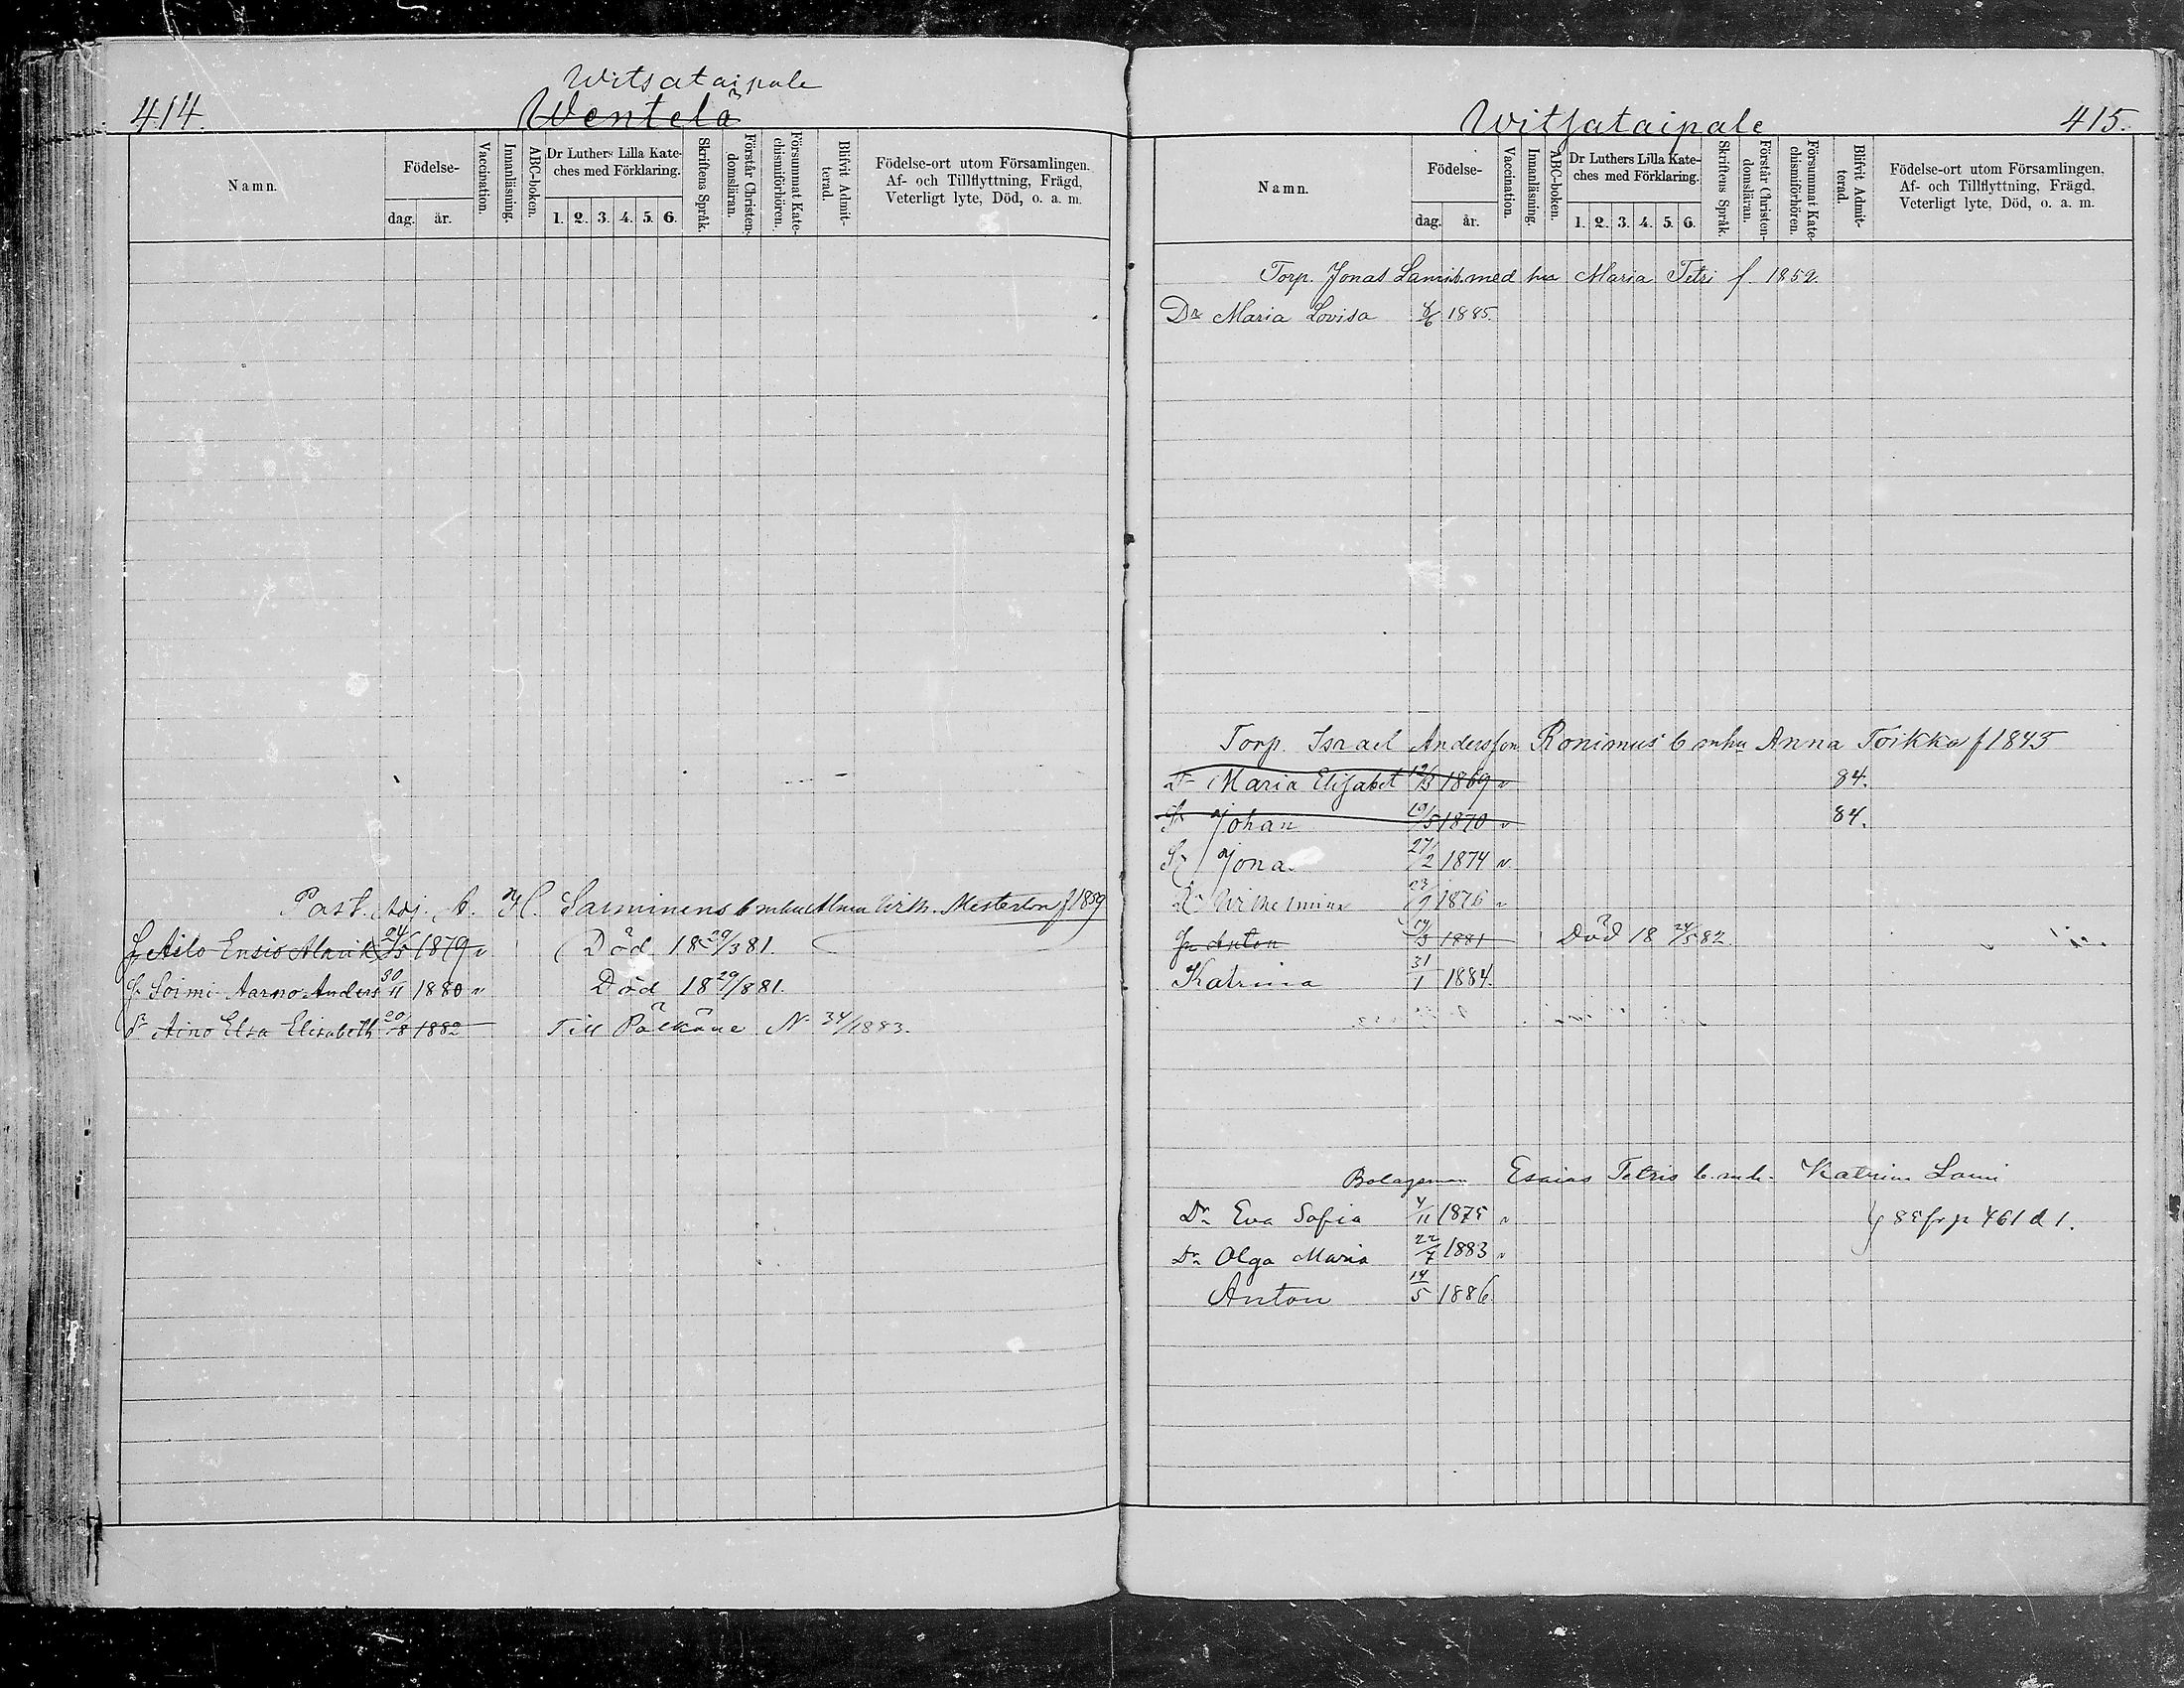 414.
Witsataipale
Wentelä
Namn.
Födelse-
dag.
år.
Vaccination.
Innanläsning.
ABC-boken.
Dr Luthers Lilla Kate-
ches med Förklaring.
1. 2. 3. 4. 5. 6.
Skriftens Språk.
Förstår Christen-
domsläran.
Försummat Kate-
chismiförhören.
Blifvit Admit-
terad.
Födelse-ort utom Församlingen.
Af- och Tillflyttning, Frägd,
Veterligt lyte, Död, o. a. m.
Past. Adj. A. H. Sarminens b mhu Alma Wilh. Mesterton f 1859
Ailo Ensio Alarik 24/5 1879 v Död 18 29/3 81.
S. Soimi Aarno Anders 30/11 1880 v Död 18 29/8 81.
Dr Aino Elsa Elisabeth 20/8 1882 Till Pälkäne N 34/1883.
Witsataipale
415.
Namn.
Födelse-
dag.
år.
Vaccination.
Innanläsning.
ABC-boken.
Dr Luthers Lilla Kate-
ches med Förklaring.
1. 2. 3. 4. 5. 6.
Skriftens Språk.
Förstår Christen-
domsläran.
Försummat Kate-
chismiförhören.
Blifvit Admit-
terad.
Födelse-ort utom Församlingen.
Af- och Tillflyttning, Frägd,
Veterligt lyte, Död, o. a. m.
Torp. Jonas med hu Maria Tetri f. 1852.
Dr Maria Lovisa 1885.
Torp. Israel Andersson Ronimus b mhu Anna Toikka f 1845
Dr Maria Elisabet 1869 v 84.
Sr Johan 19/5 1870 v 84.
Sr Jonas 27/2 1874 v
Dr Wilhelmina 23/9 1876 v
Sr Anton 1881 Död 18 24/5 82.
Katrina 31/1 1884.
Bolagsman Esaias Tetris b. mh. Katrina Lami
Dr Eva Sofia 4/11 1875 v 85 fr p 461 d 1.
Dr Olga Maria 22/7 1883 v
Anton 14/5 1886